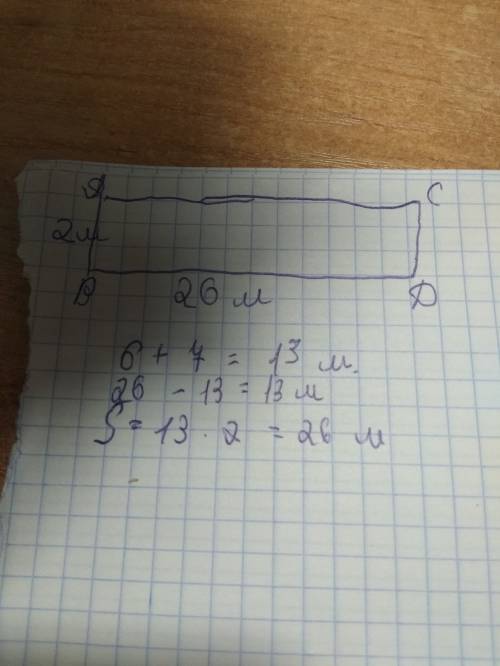 A C
2м
B 26 м D
6 + 7 = 13 м.
26 - 13 = 13 м
S = 13 · 2 = 26 м